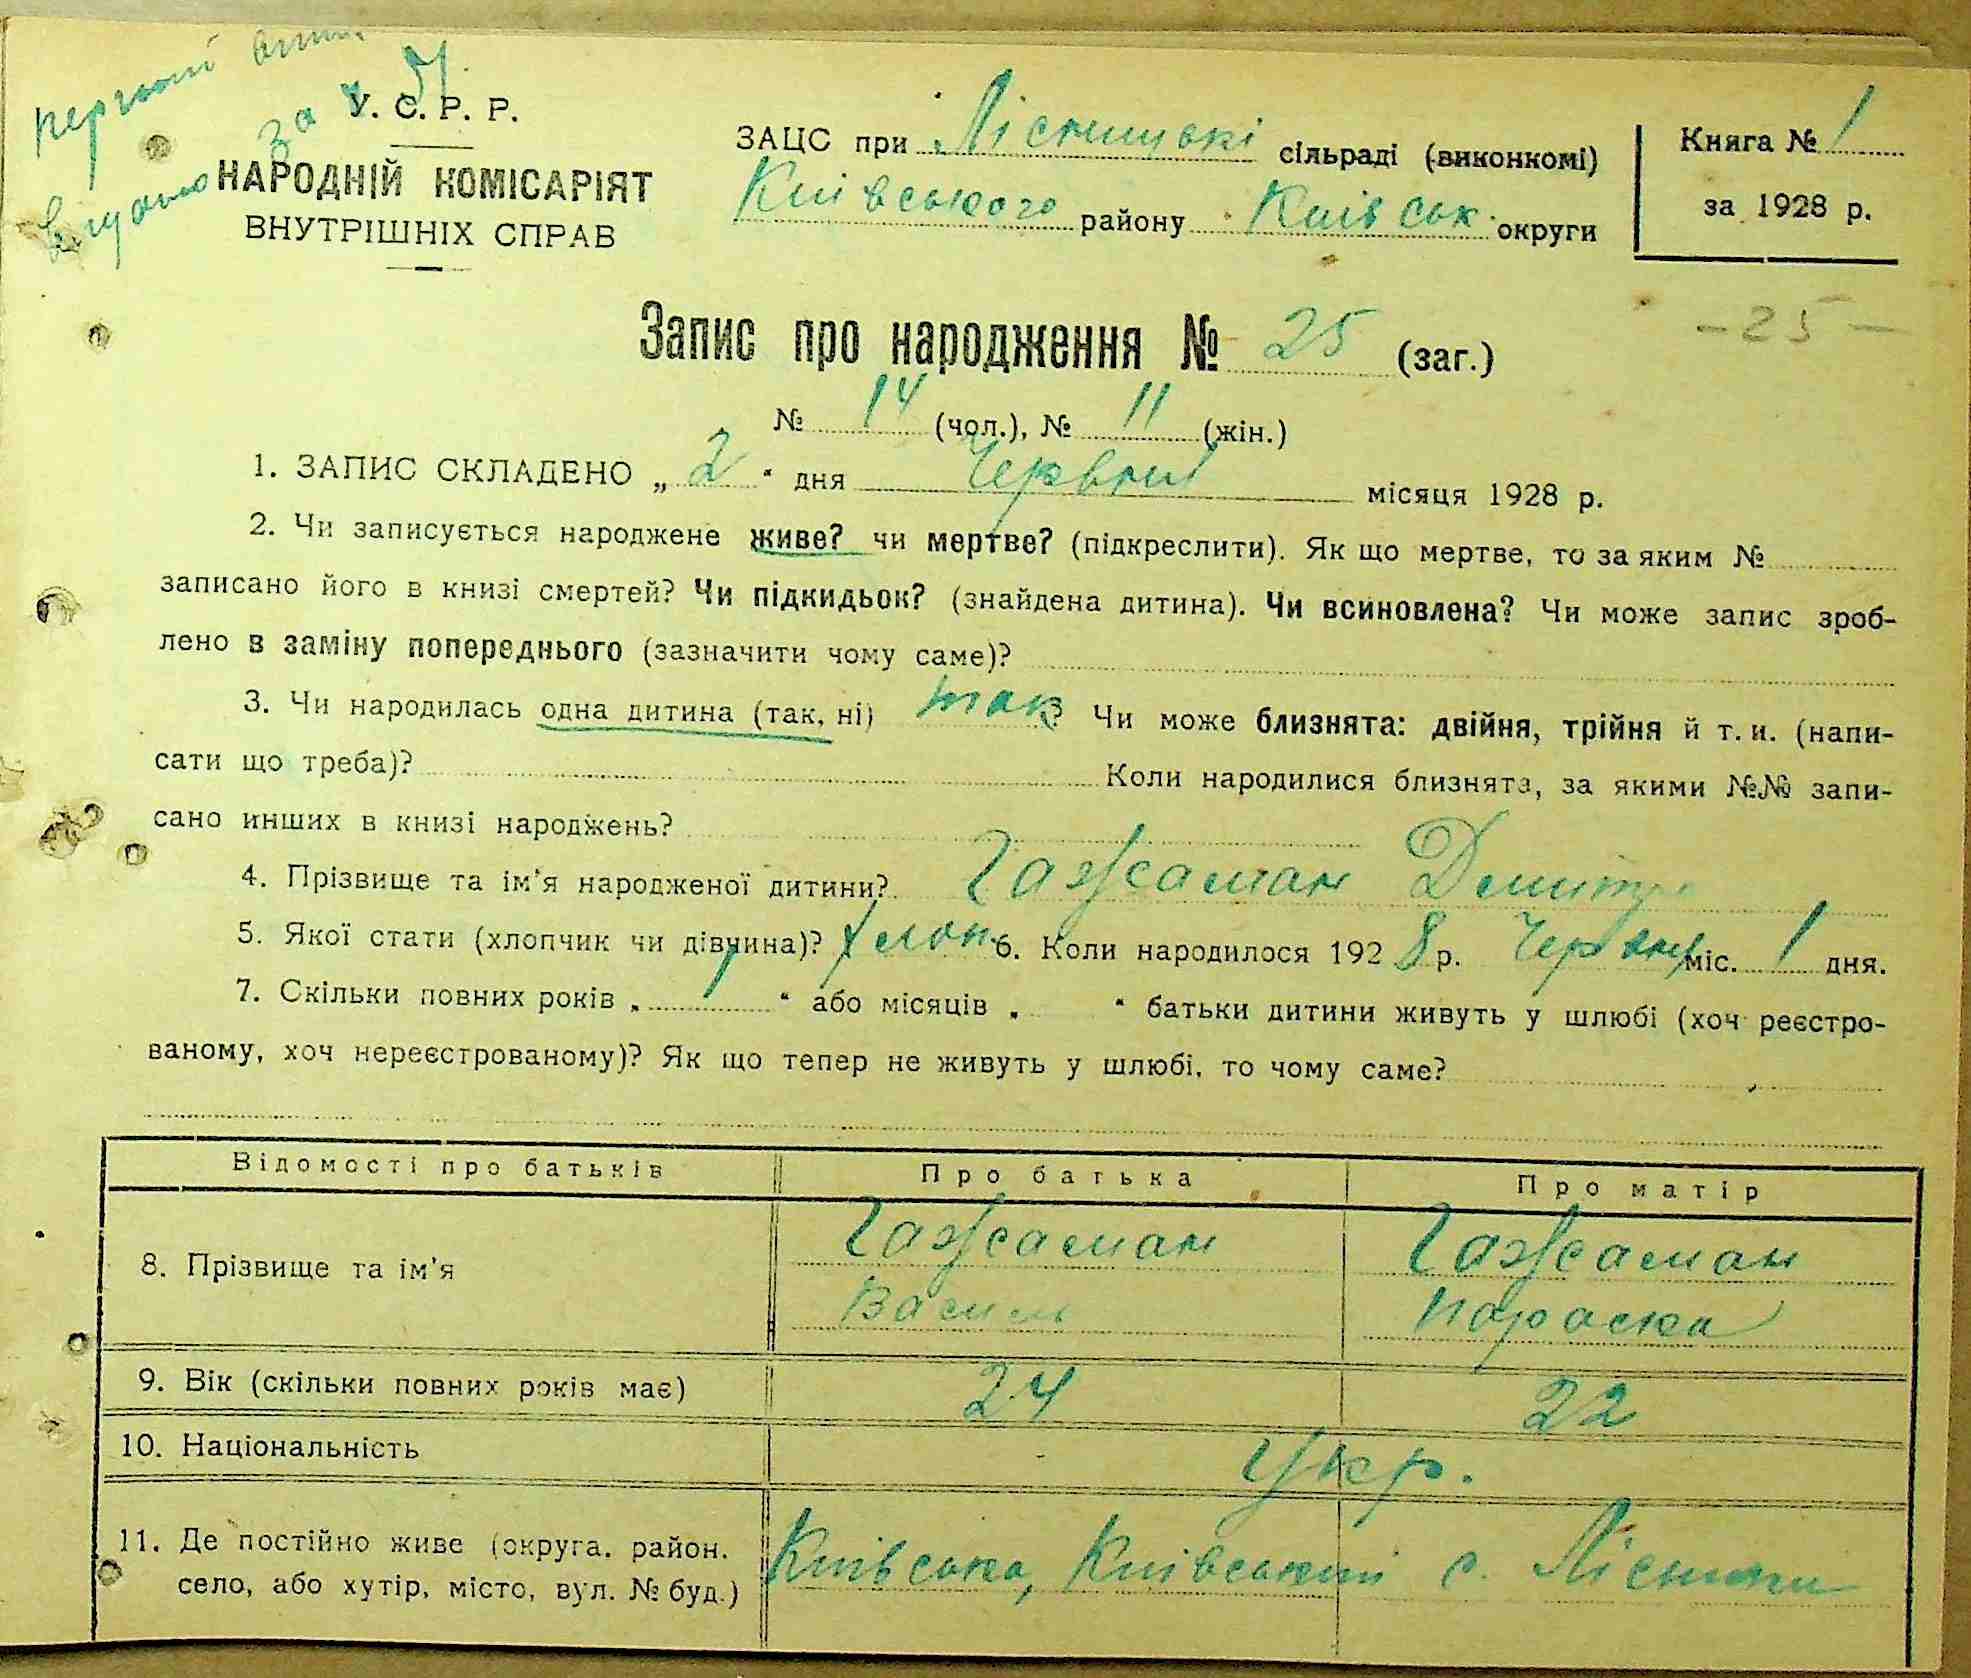 первый
видано за № 51
У. С. Р. Р.
НАРОДНІЙ КОМІСАРІЯТ
ВНУТРІШНІХ СПРАВ
ЗАЦС при Лісницькі сільраді (виконкомі)
Київського району Київськ. округи
Книга № 1
за 1928 р.
Запис про народження № 25 (заг.)
– 25 –
№ 14 (чол.), № 11 (жін.)
1. ЗАПИС СКЛАДЕНО „ 2 “ дня Червня місяця 1928 р.
2. Чи записується народжене живе? чи мертве? (підкреслити). Як що мертве, то за яким №
записано його в книзі смертей? Чи підкидьок? (знайдена дитина). Чи всиновлена? Чи може запис зроб-
лено в заміну попереднього (зазначити чому саме)?
3. Чи народилась одна дитина (так, ні) так? Чи може близнята: двійня, трійня й т. и. (напи-
сати що треба)? Коли народилися близнята, за якими №№ запи-
сано инших в книзі народжень?
4. Прізвище та ім'я народженої дитини? Гажаман Дмитр
5. Якої стати (хлопчик чи дівчина)? хлоп. 6. Коли народилося 1928 р. Червня міс. 1 дня.
7. Скільки повних років „ “ або місяців „ “ батьки дитини живуть у шлюбі (хоч реєстро-
ваному, хоч нереєстрованому)? Як що тепер не живуть у шлюбі, то чому саме?
Відомості про батьків Про батька Про матір
8. Прізвище та ім'я Гажаман Гажаман
Василь Параска
9. Вік (скільки повних років має) 24 22
10. Національність Укр.
11. Де постійно живе (округа, район,
село, або хутір, місто, вул. № буд.) Київська, Київський с. Лісники